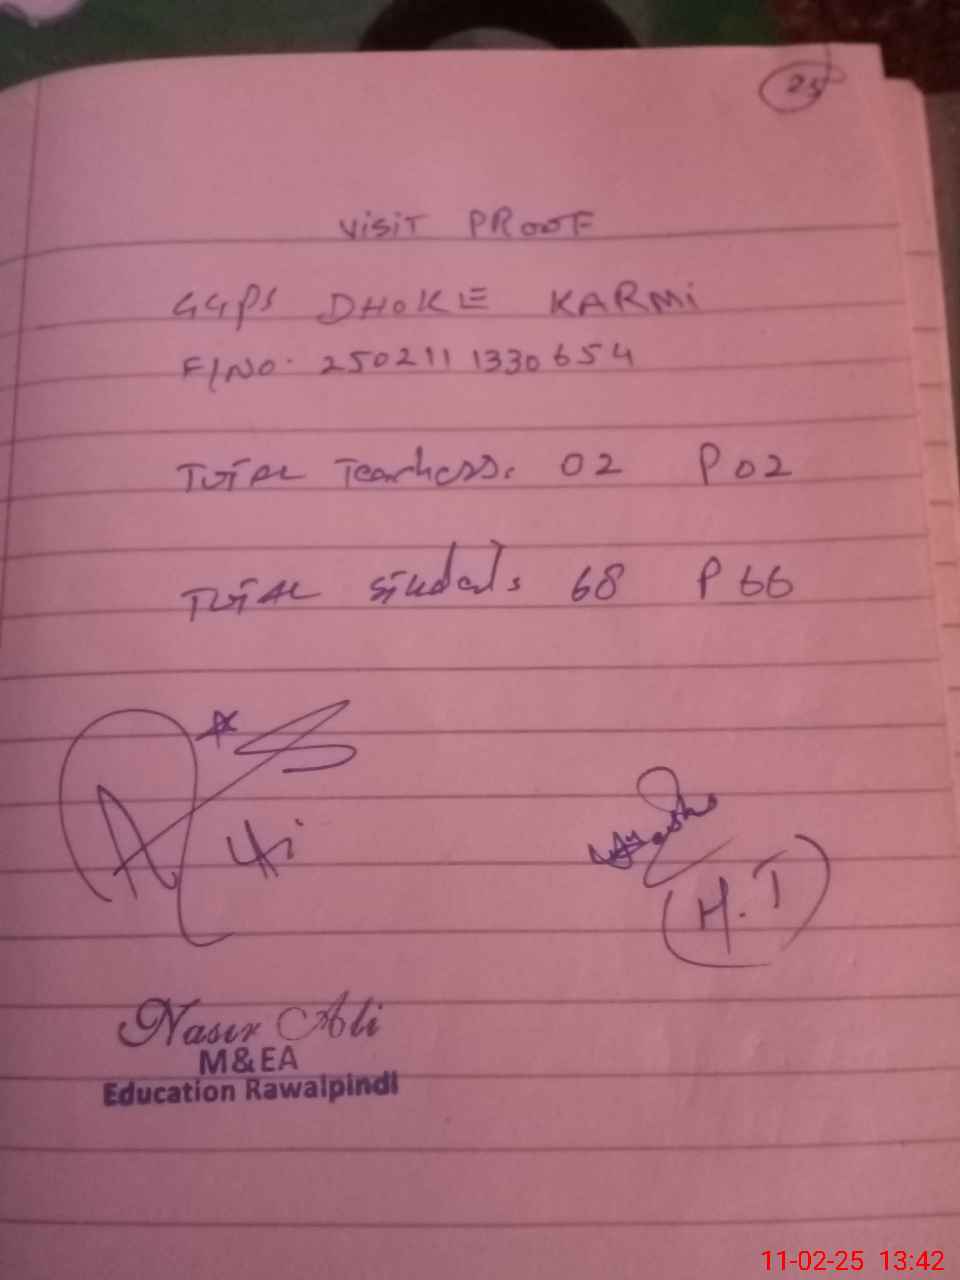 25
VISIT PROOF
GGPS DHOKE KARMI
F/NO. 250211 1330654
TOTAL Teachers. 02 P 02
TOTAL students 68 P 66
(H.T)
Nasir Ali
M&EA
Education Rawalpindi
11-02-25 13:42